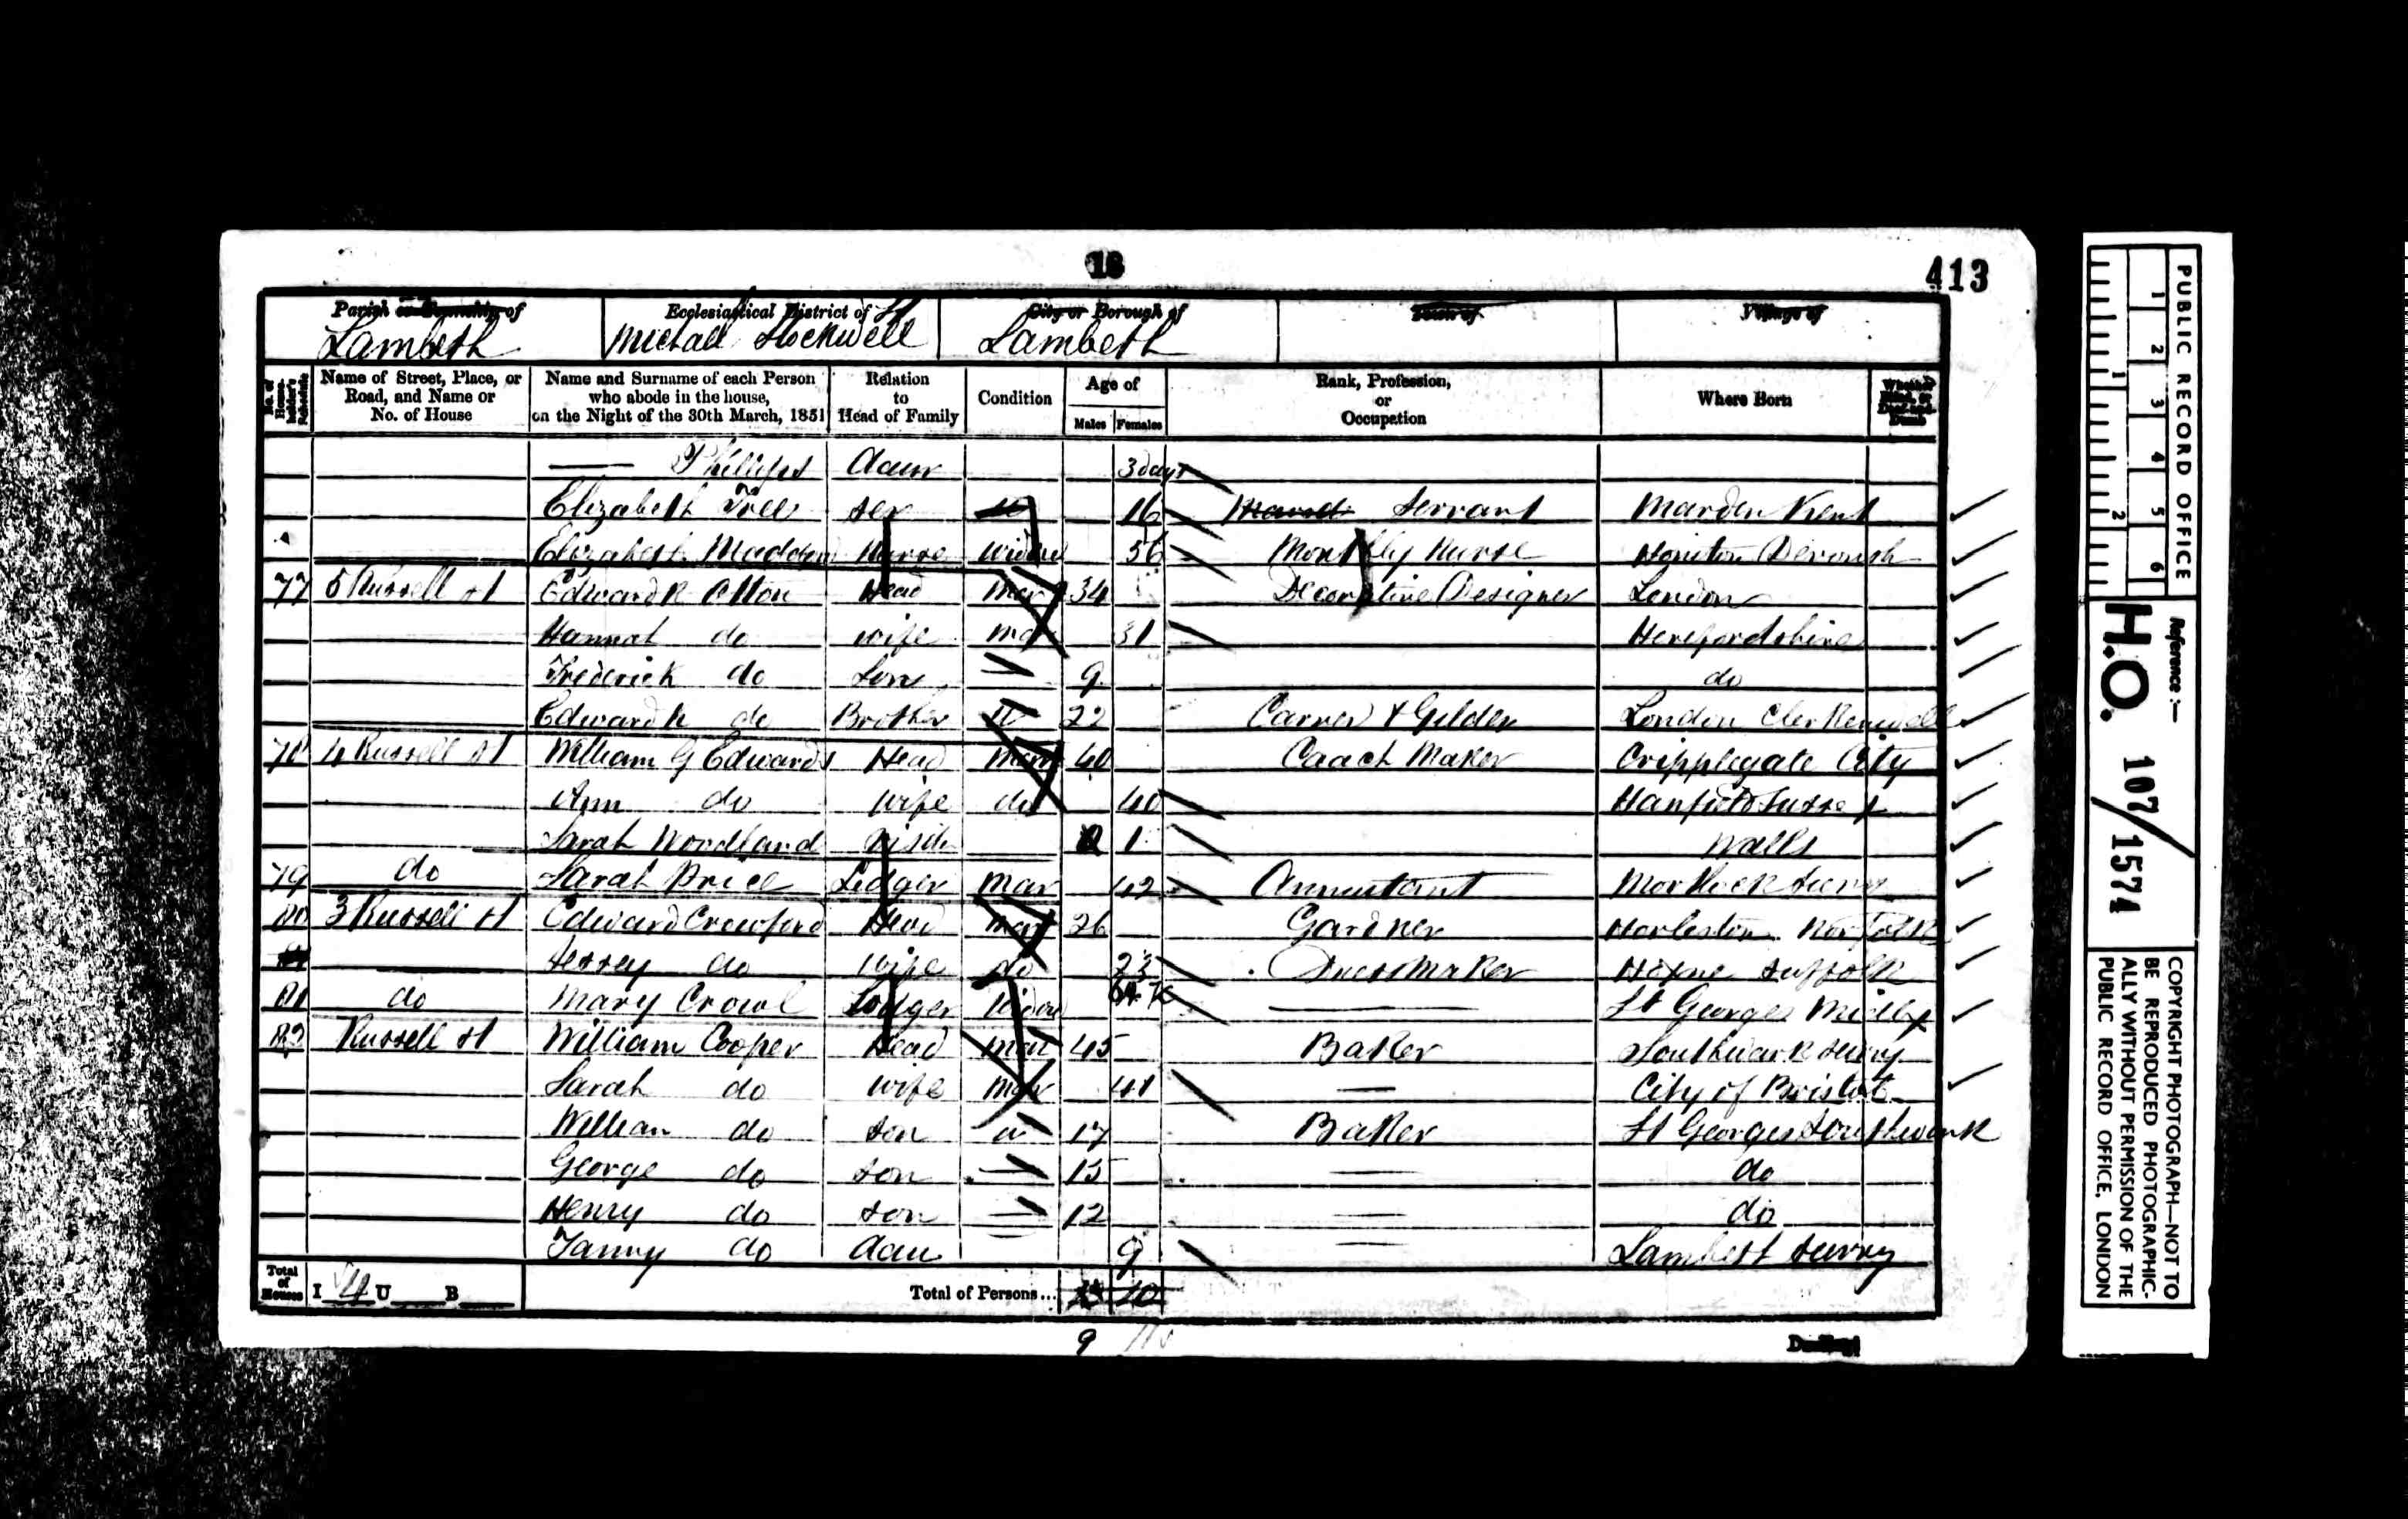 18
413
Parish or Township of
Lambeth
Ecclesiastical District of St
Michael Stockwell
City or Borough of
Lambeth
Town of
Village of
No. of Householder's Schedule
Name of Street, Place, or Road, and Name or No. of House
Name and Surname of each Person who abode in the house, on the Night of the 30th March, 1851
Relation to Head of Family
Condition
Age of
Males Females
Rank, Profession, or Occupation
Where Born
Whether Blind, or Deaf-and-Dumb
— Phillips Daur 3 days
Elizabeth Ser 16 Servant Marden Kent
Elizabeth Madden Nurse Widow 56 Monthly Nurse Honiton Devonsh
77 5 Russell st Edward R Head Mar 34 Decorative Designer London
Hannah do wife Mar 31 Herefordshire
Frederick do Son — 9 do
Edward R do Brother U 22 Carver & Gilder London Clerkenwell
78 4 Russell st William G Edwards Head Mar 40 Coach Maker Cripplegate City
Ann do wife do 40 Sussex
Sarah Woodland 1
79 do Sarah Price Lodger Mar 42 Annuitant Mortlock Surry
80 3 Russell st Edward Crowford Head Mar 26 Gardner Harleston Norfolk
do wife do 23 Dressmaker Hoxne Suffolk
81 do Mary Crowl Lodger Widow — St Georges Middx
82 Russell st William Cooper Head Mar 45 Baker Southwark Surry
Sarah do wife Mar 41 — City of Bristol
William do son U 17 Baker St Georges Southwark
George do son — 15 — do
Henry do son — 12 — do
Fanny do dau 9 — Lambeth Surry
Total of Houses I 4 U B Total of Persons... 10
9
PUBLIC RECORD OFFICE
1 2 3 4 5 6
1 2
Reference :—
H.O. 107/1574
COPYRIGHT PHOTOGRAPH—NOT TO
BE REPRODUCED PHOTOGRAPHIC-
ALLY WITHOUT PERMISSION OF THE
PUBLIC RECORD OFFICE, LONDON